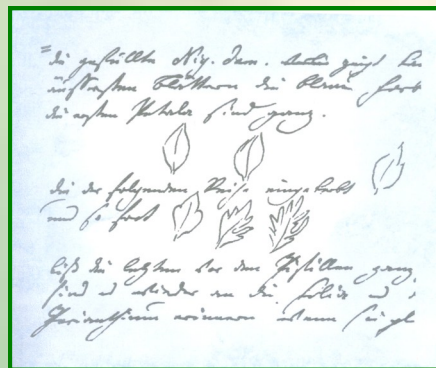 die gefüllte Nig. dam. zeigt
äussersten Blättern die blaue Farb
die ersten Petala sind ganz.
die der folgenden Reihe eingekerbt
und so fort
biß die letzten vor den Pistillen ganz
sind und wieder an die folia und
Perianthium erinnern wenn sie gl